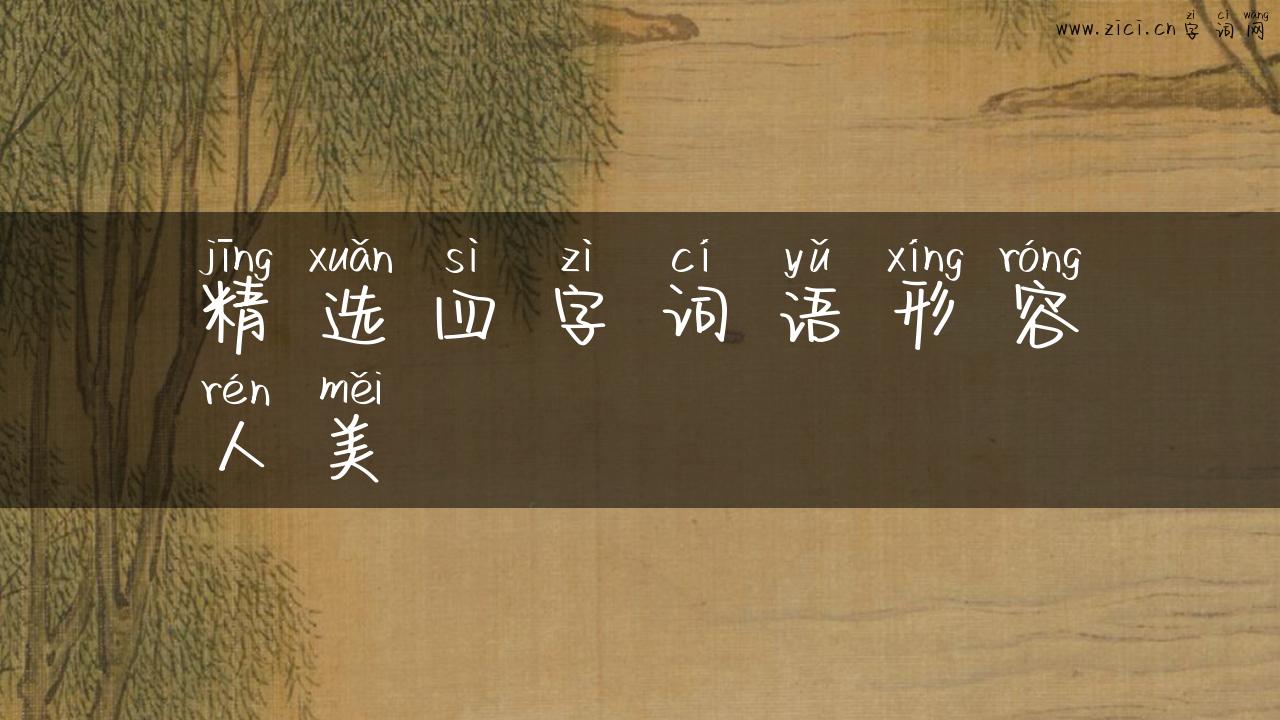 zì cí wǎng
www.zici.cn字词网
jīng xuǎn sì zì cí yǔ xíng róng
精选四字词语形容
rén měi
人美